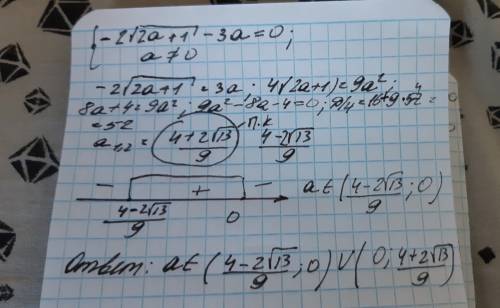 { -2√(2a+1) - 3a = 0;
a ≠ 0
-2√(2a+1) = 3a; 4(2a+1) = 9a²;
8a+4 = 9a²; 9a²-8a-4=0; D/4 = 16+9·4 =
= 52
a₁,₂ = (4+2√13)/9 п.к (4-2√13)/9
- + - a ∈ ((4-2√13)/9; 0)
(4-2√13)/9 0
Ответ: a ∈ ((4-2√13)/9; 0) ∪ (0; (4+2√13)/9)